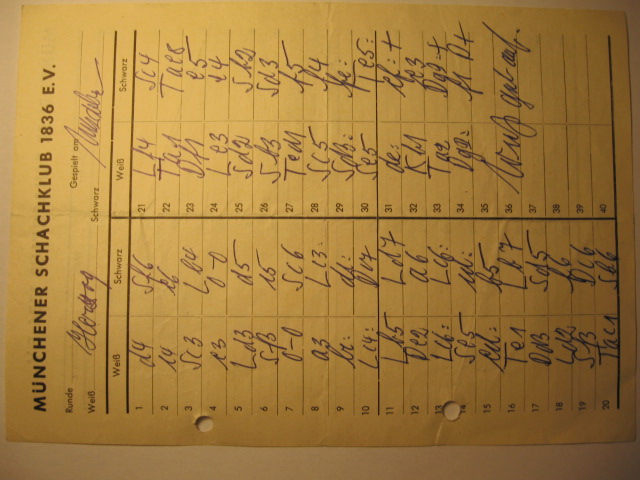 MÜNCHENER SCHACHKLUB 1836 E.V.
Runde Gespielt am
Weiß Schwarz
Weiß Schwarz Weiß Schwarz
1 d4 Sf6 21 Lf4 Sc4
2 c4 e6 22 Ta1 Tac8
3 Sc3 Lb4 23 Df1 e5
4 e3 0-0 24 Le3 e4
5 Ld3 d5 25 Sd2 Sb2
6 Sf3 c5 26 Sb3 Sd3
7 0-0 Sc6 27 Ted1 f5
8 a3 Lc3: 28 Sc5 f4
9 bc: dc: 29 Sd3: fe:
10 Lc4: Dc7 30 Se5
11 Lb5 Ld7 31 de: ef:+
12 De2 a6 32 Kh1
13 Lc6: Lc6: 33 Ta2
14 Se5 cd: 34 Dg2: f1D+
15 cd: b5 35
16 Te1 Lb7 36 Weiß gab auf.
17 Dd3 Sd5 37
18 Ld2 f6 38
19 Sf3 Dc6 39
20 Tac1 Sb6 40